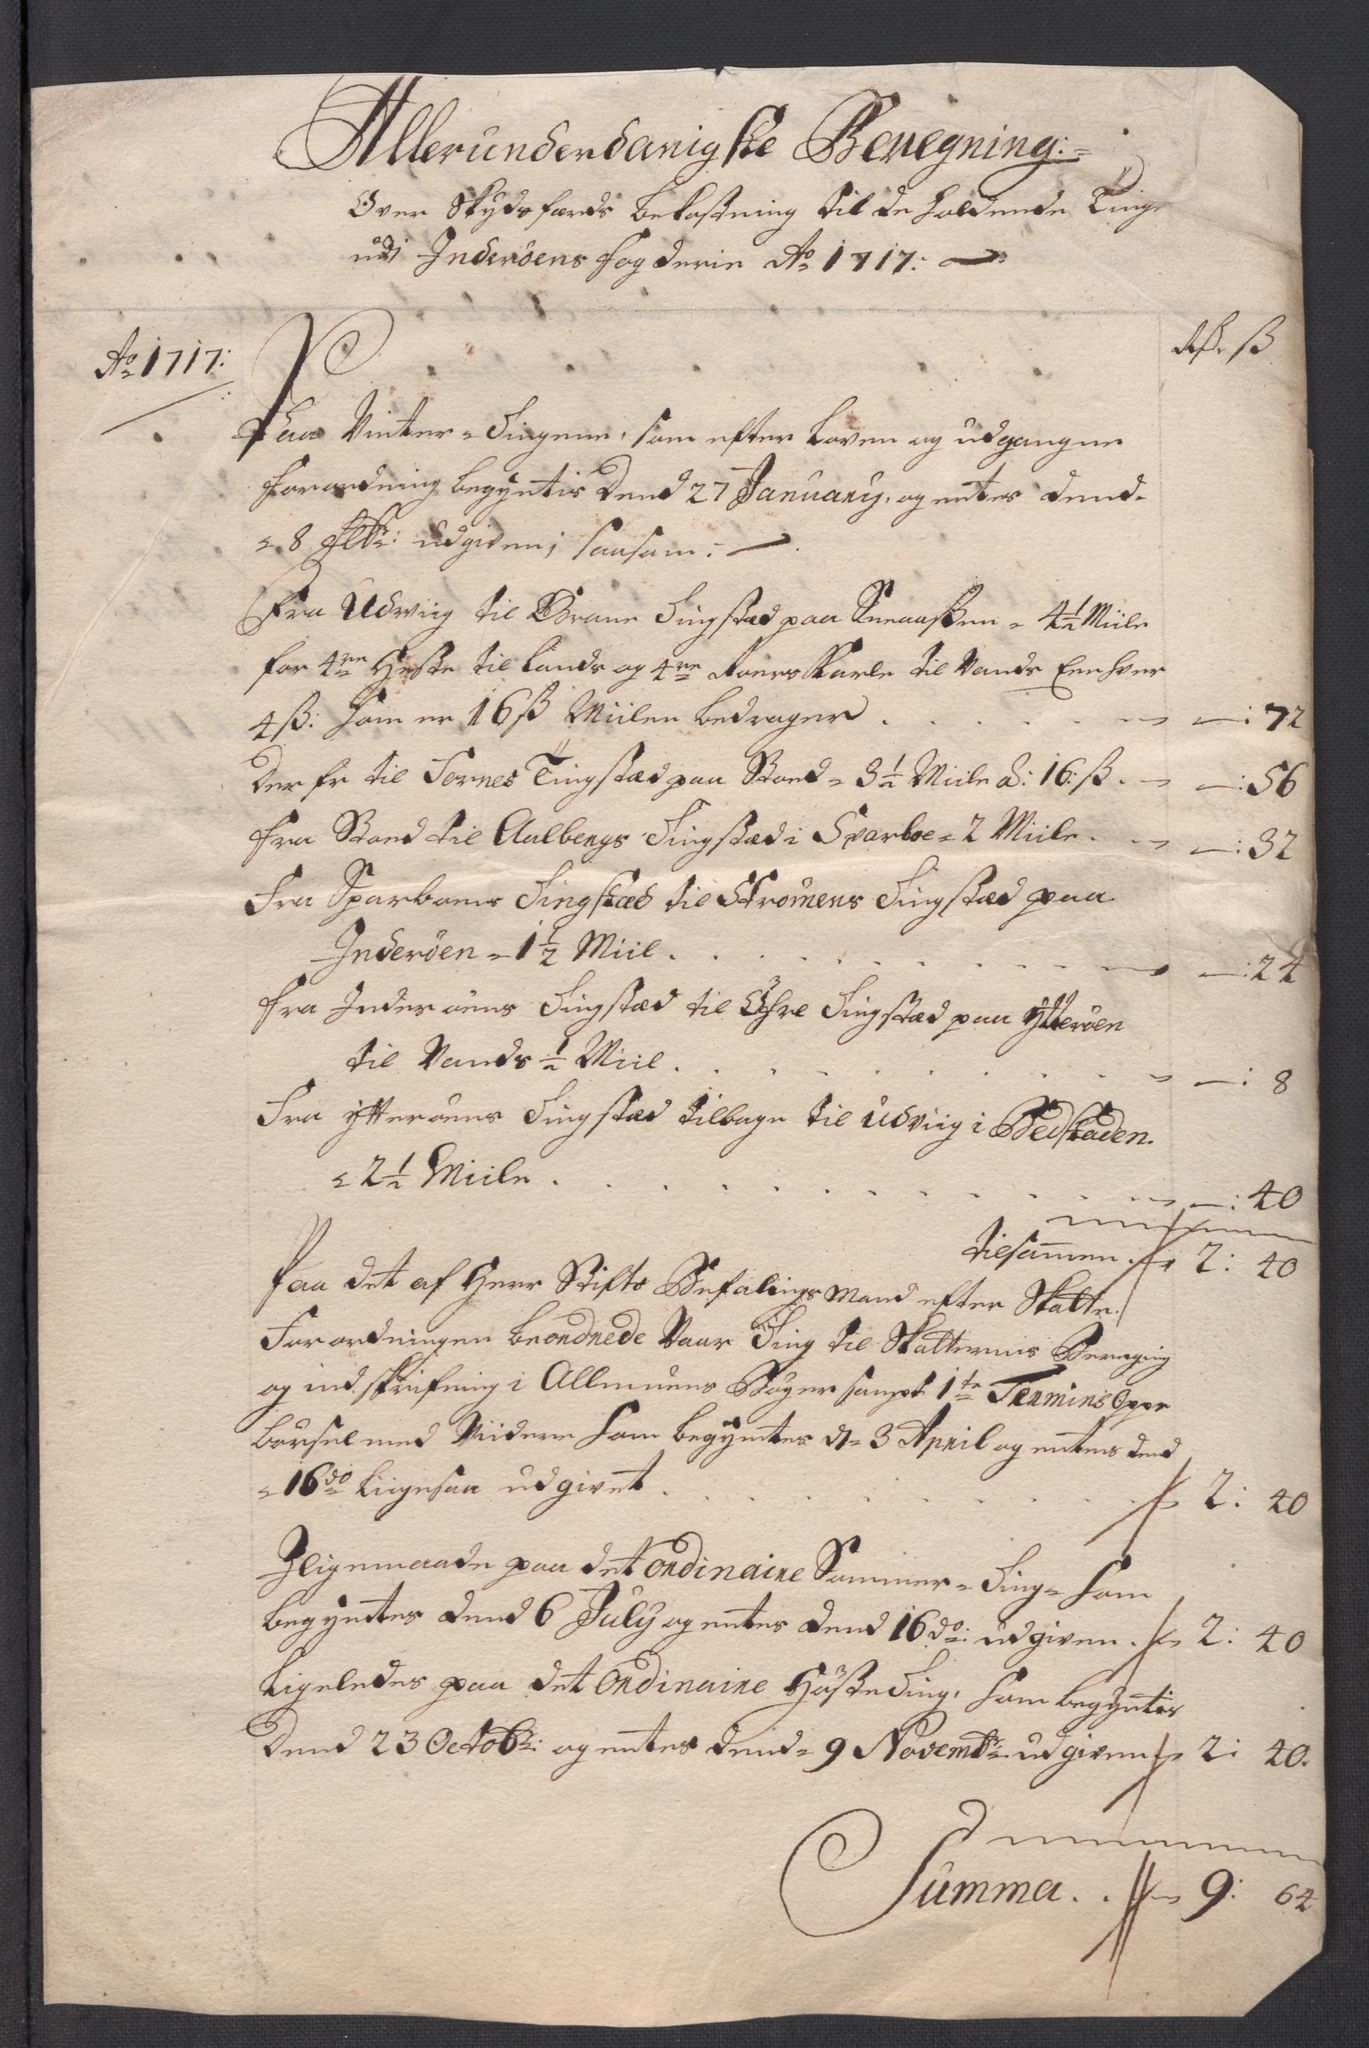 Allerunderdanigste Beregning:
Over Skydsfærds bekostning til de holdende Ting
udi Inderöens Fogderie Ao 1717:
Rdr ß
Ao 1717:
Paa Vinter-Tingene, som efter Loven og udgangne
Forordning begyntis Dend 27 January, og entes Dend
8 Febr: udgiven, saasom:
Fra Udviig til Brane Tingstæd paa Sneaasen 4½ Miile
for 4re Heste til Lands og 4re Roers Karle til Vands Eenhver
4 ß: som er 16 ß Miilen bedrager . . . —: 72
Der fr til Fornes Tingstæd paa Stoed 3½ Miile â: 16: ß. —: 56
Fra Stoed til Aalbergs Tingstæd i Sparboe 2 Miile. —: 32
Fra Sparboens Tingstæd til Strömens Tingstæd paa
Inderöen 1½ Miil . . . —: 24
Fra Inderöens Tingstæd til Öhre Tingstæd paa Ytteröen
til Vands ½ Miil . . . —: 8
Fra Ytteröens Tingstæd tilbage til Udviig i Bedstaden
2½ Miile . . . —: 40
tilsammen . 2: 40
Paa det af Herr Stifts Befalings Mand efter Skatte
Forordningen beordrede Vaar Ting til Skatternis
og ind skrifning i Allmuens Böger sampt 1te Termins Oppe
börsel med Viidere som begyntes d 3 April og entes dend
16do Liigesaa udgivet . . . 2: 40
Iligemaade paa det ordinaire Sommer-Ting som
begyntes dend 6 July og entes dend 16do: udgiven . 2: 40
Ligeledes paa det Ordinaire HösteTing, som begyntis
dend 23 Octobr: og entes dend 9 Novembr: udgiven 2: 40.
Summa . . 9: 64